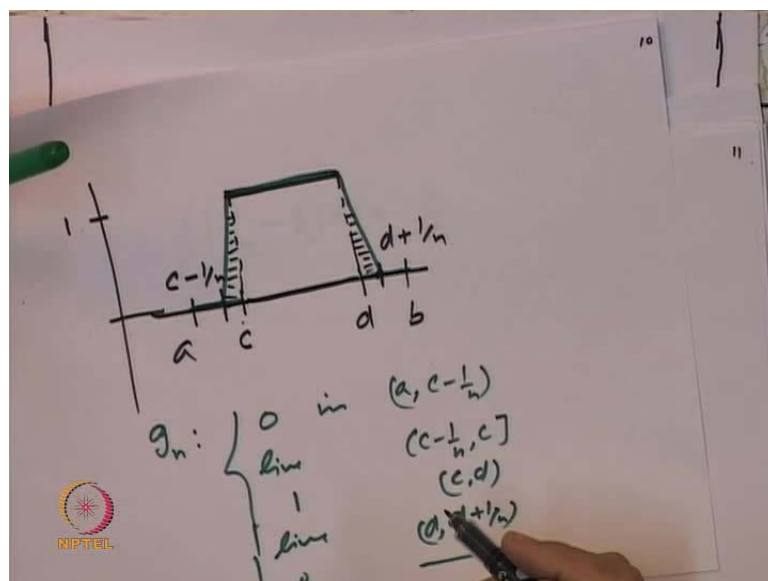 10
11
1
c-1/n
d+1/n
a
c
d
b
gₙ: { 0 in (a, c-1/n)
line (c-1/n, c]
1 (c,d)
line (d, d+1/n)
0
NPTEL